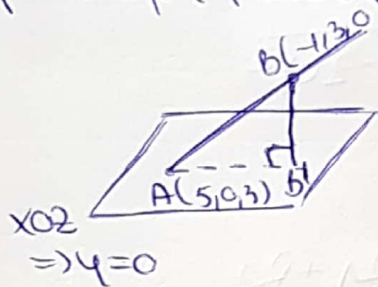 B(-1,3,0
A(5,0,3) B'
XOZ
=> y=0